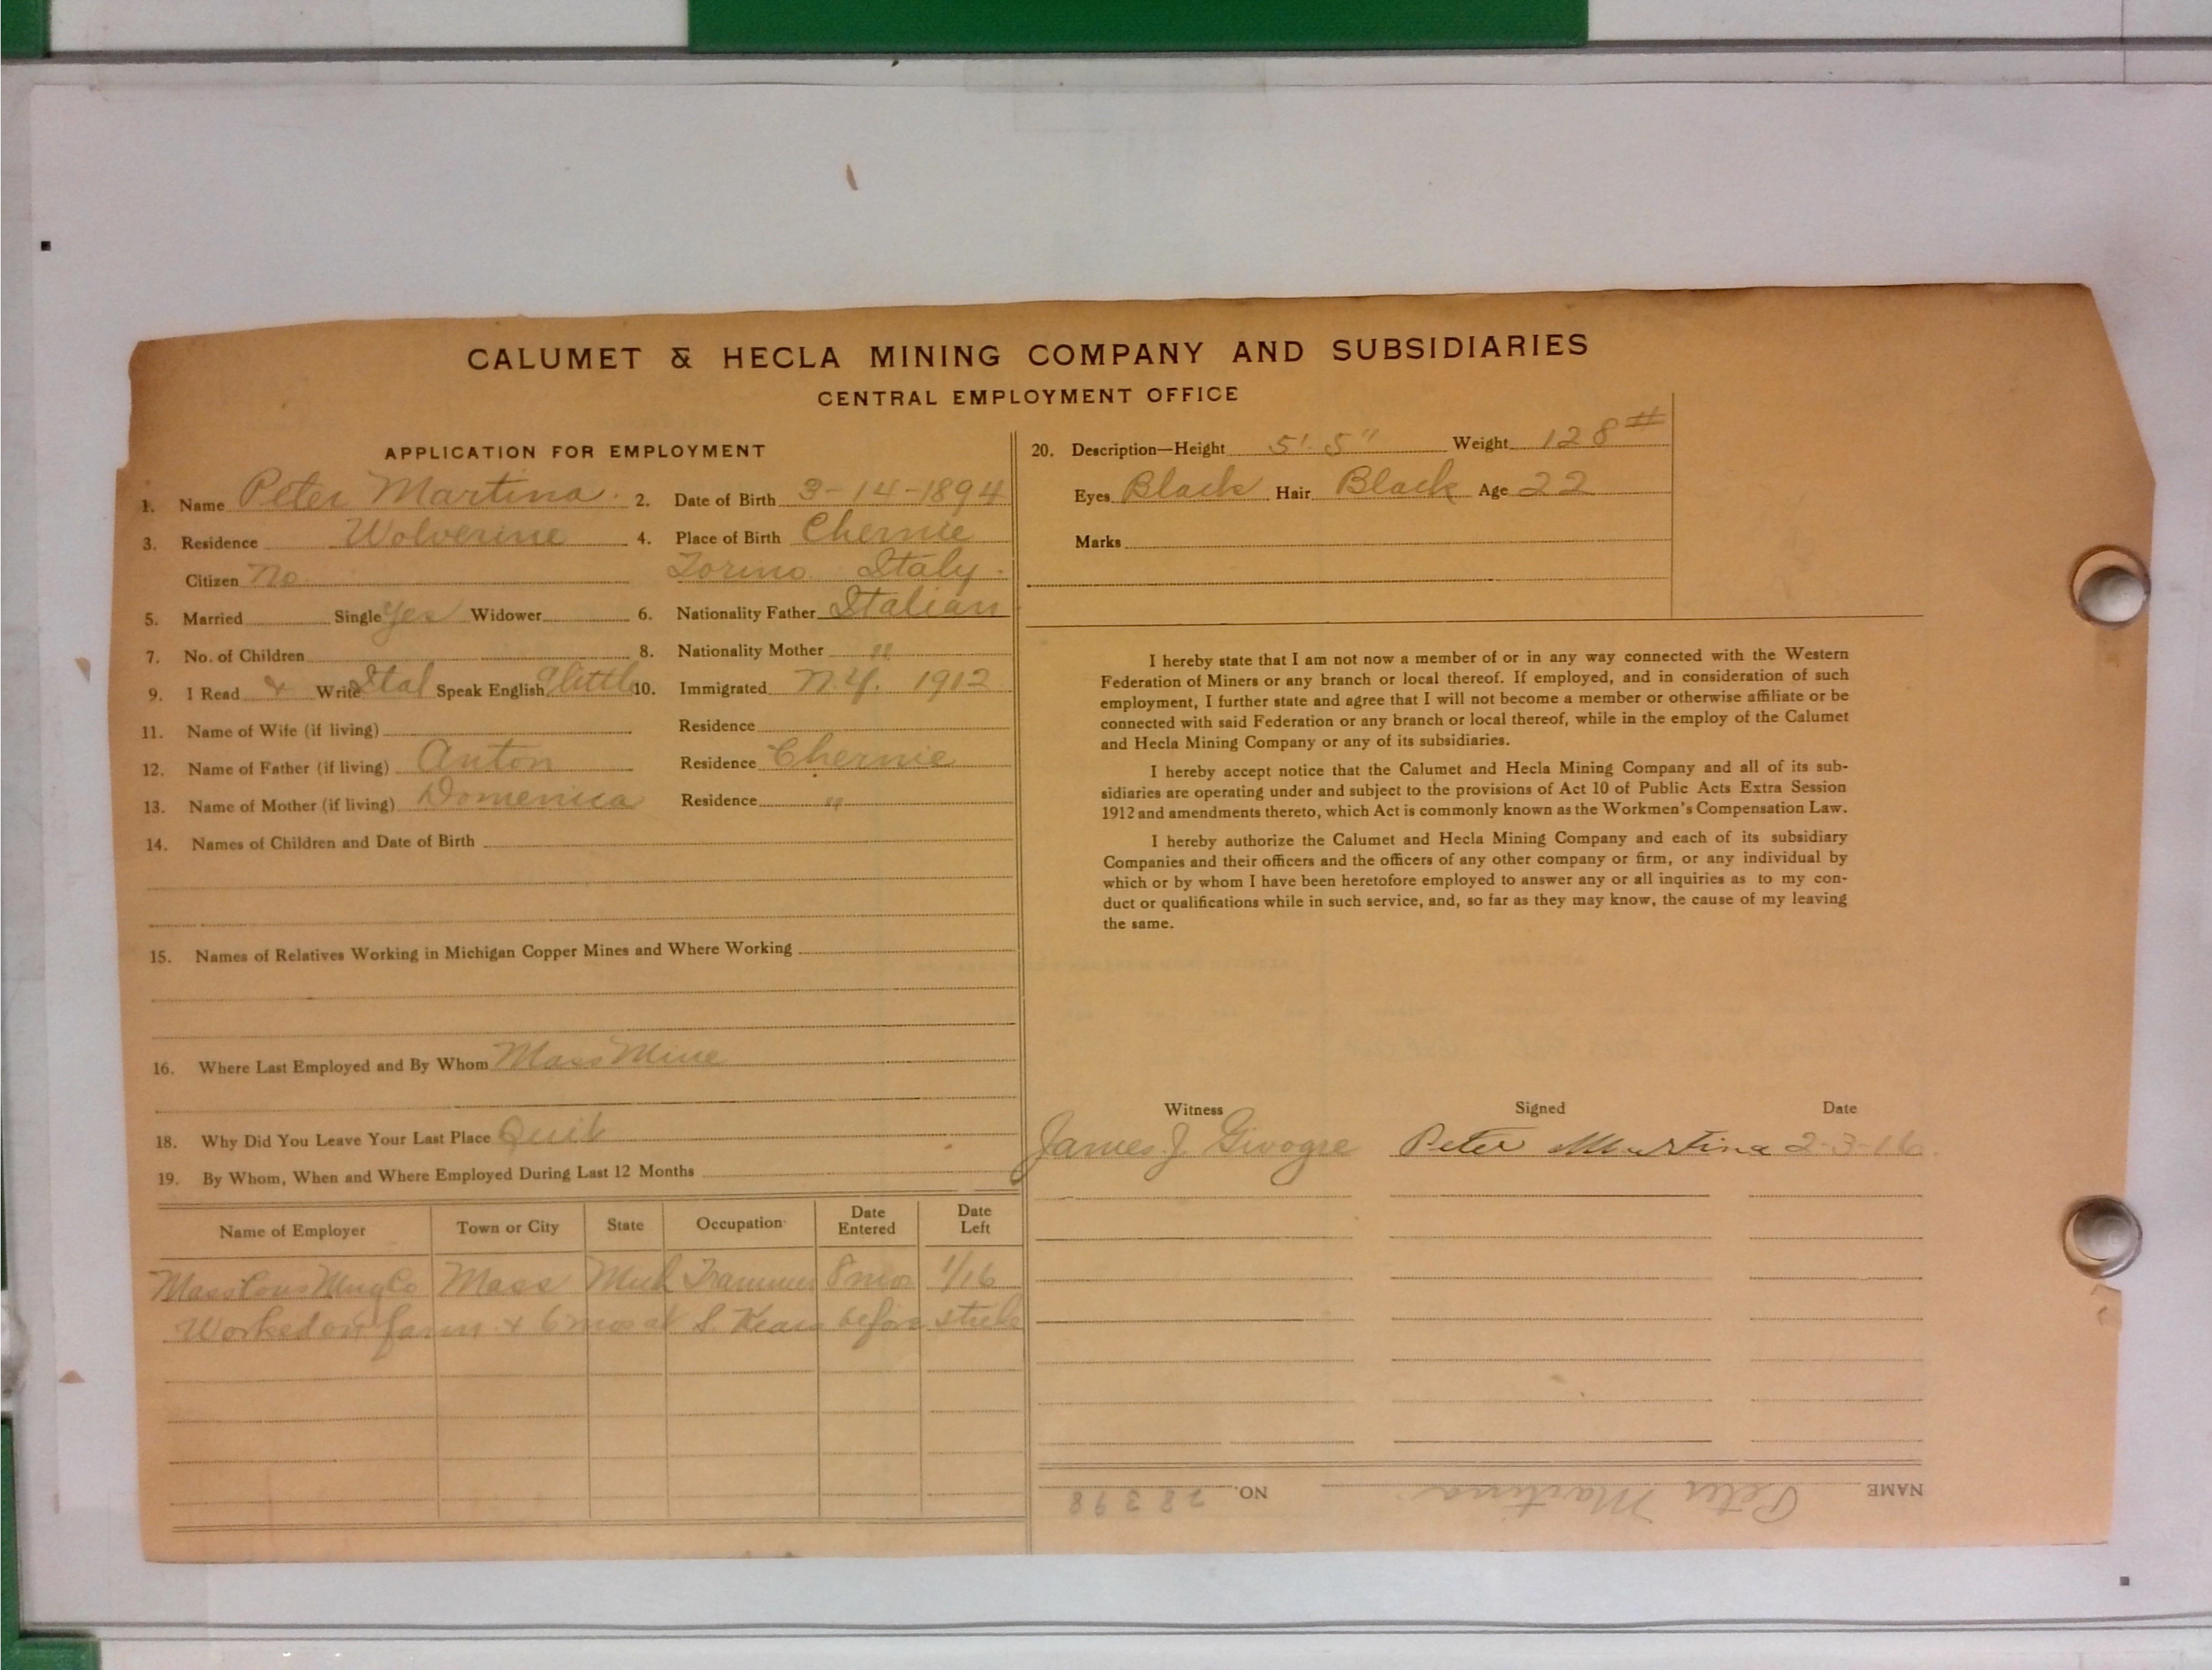 CALUMET & HECLA MINING COMPANY AND SUBSIDIARIES
CENTRAL EMPLOYMENT OFFICE
APPLICATION FOR EMPLOYMENT
1. Name Peter Martina. 2. Date of Birth 3-14-1894
3. Residence Wolverine 4. Place of Birth Chernie
Citizen No. Torino Italy.
5. Married Single Yes Widower 6. Nationality Father Italian
7. No. of Children 8. Nationality Mother "
9. I Read & Write Ital Speak English A little 10. Immigrated N.Y. 1912
11. Name of Wife (if living) Residence
12. Name of Father (if living) Anton Residence Chernie
13. Name of Mother (if living) Domenica Residence "
14. Names of Children and Date of Birth
15. Names of Relatives Working in Michigan Copper Mines and Where Working
16. Where Last Employed and By Whom Mass Mine
18. Why Did You Leave Your Last Place Quit
19. By Whom, When and Where Employed During Last 12 Months
Name of Employer Town or City State Occupation Date Entered Date Left
Mass Cons Mng Co Mass Mich Trammer 8 mos 1/16
Worked on farm & 6 mos at S. Kears before strike
20. Description—Height 5'. 5" Weight 128#
Eyes Black Hair Black Age 22
Marks
I hereby state that I am not now a member of or in any way connected with the Western
Federation of Miners or any branch or local thereof. If employed, and in consideration of such
employment, I further state and agree that I will not become a member or otherwise affiliate or be
connected with said Federation or any branch or local thereof, while in the employ of the Calumet
and Hecla Mining Company or any of its subsidiaries.
I hereby accept notice that the Calumet and Hecla Mining Company and all of its sub-
sidiaries are operating under and subject to the provisions of Act 10 of Public Acts Extra Session
1912 and amendments thereto, which Act is commonly known as the Workmen's Compensation Law.
I hereby authorize the Calumet and Hecla Mining Company and each of its subsidiary
Companies and their officers and the officers of any other company or firm, or any individual by
which or by whom I have been heretofore employed to answer any or all inquiries as to my con-
duct or qualifications while in such service, and, so far as they may know, the cause of my leaving
the same.
Witness Signed Date
James J. Givogre Peter Martina 2-3-16.
NAME Peter Martina. NO. 28398